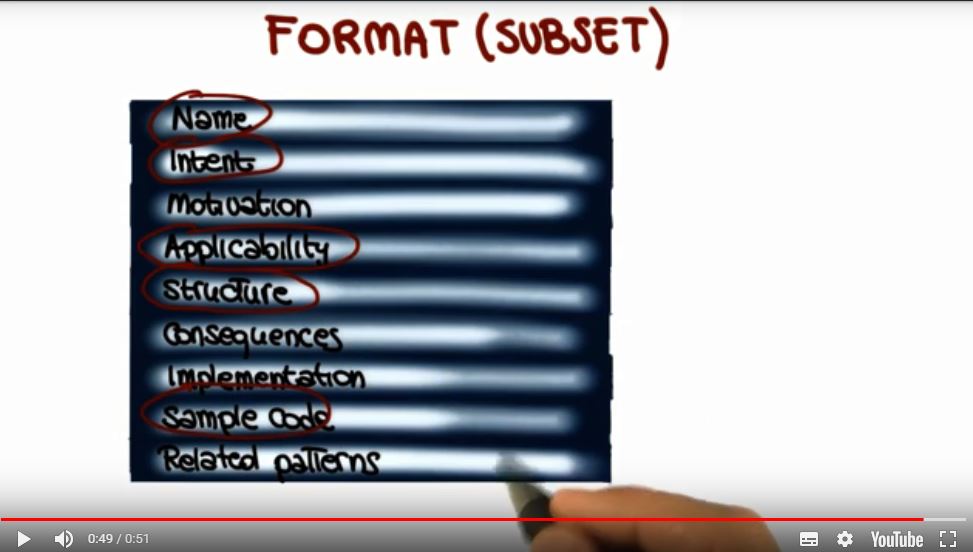 FORMAT (SUBSET)
Name
Intent
Motivation
Applicability
Structure
Consequences
Implementation
Sample Code
Related patterns
0:49 / 0:51
YouTube